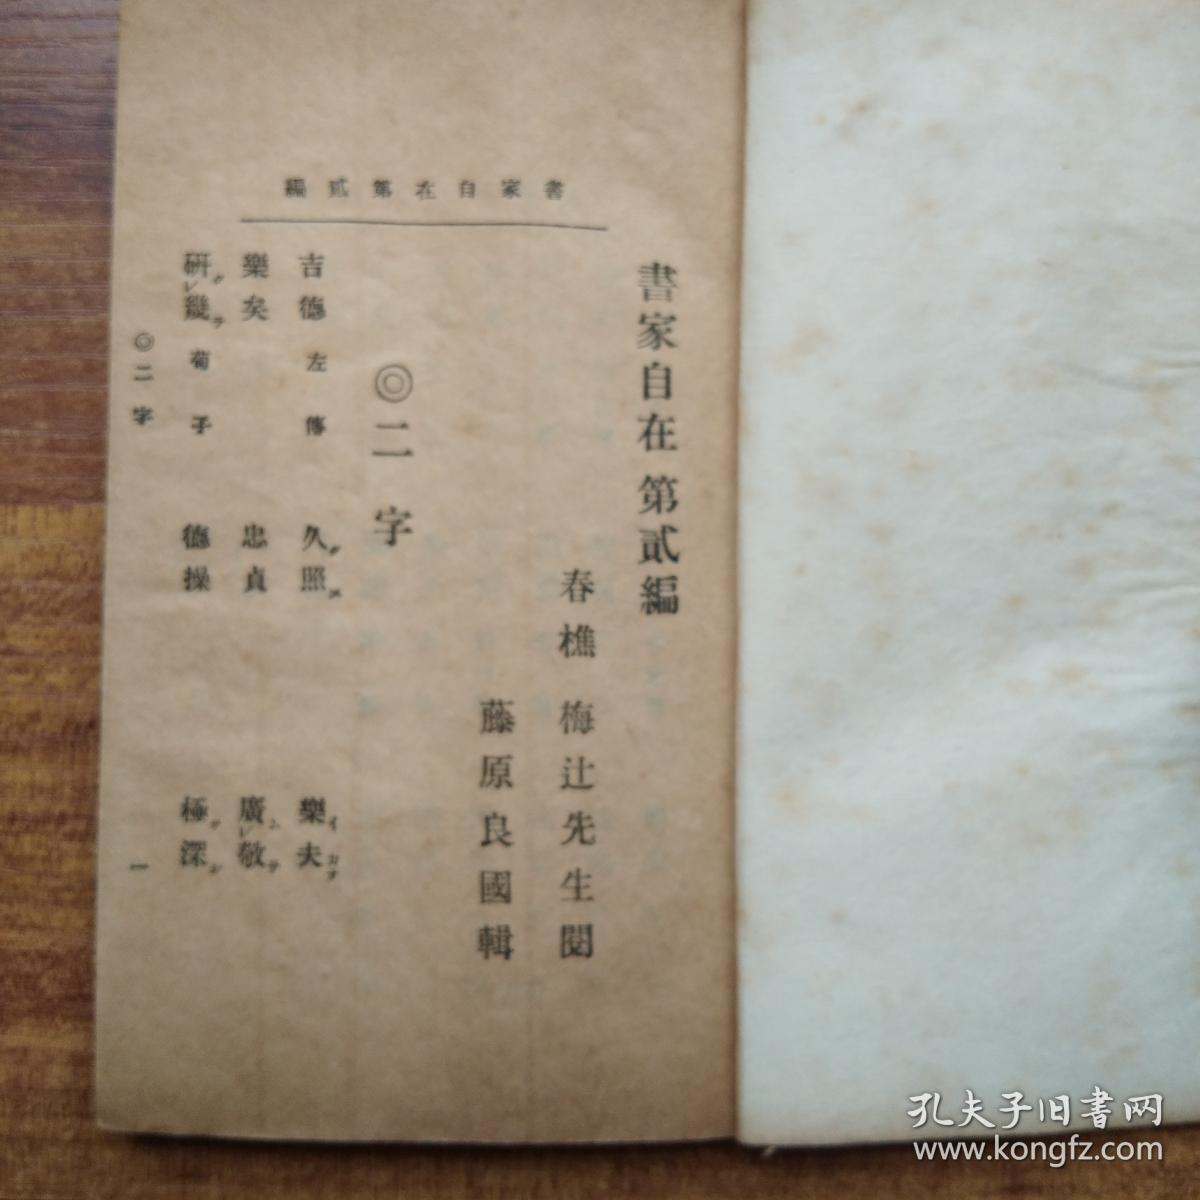 書家自在第貳編
書家自在 第貳編
春樵 梅辻先生閱
藤原良國輯
◎二字
吉德 左傳 久照 樂夫
樂矣 忠貞 廣敬
研幾 荀子 德操 極深
◎二字 一
孔夫子旧书网
www.kongfz.com